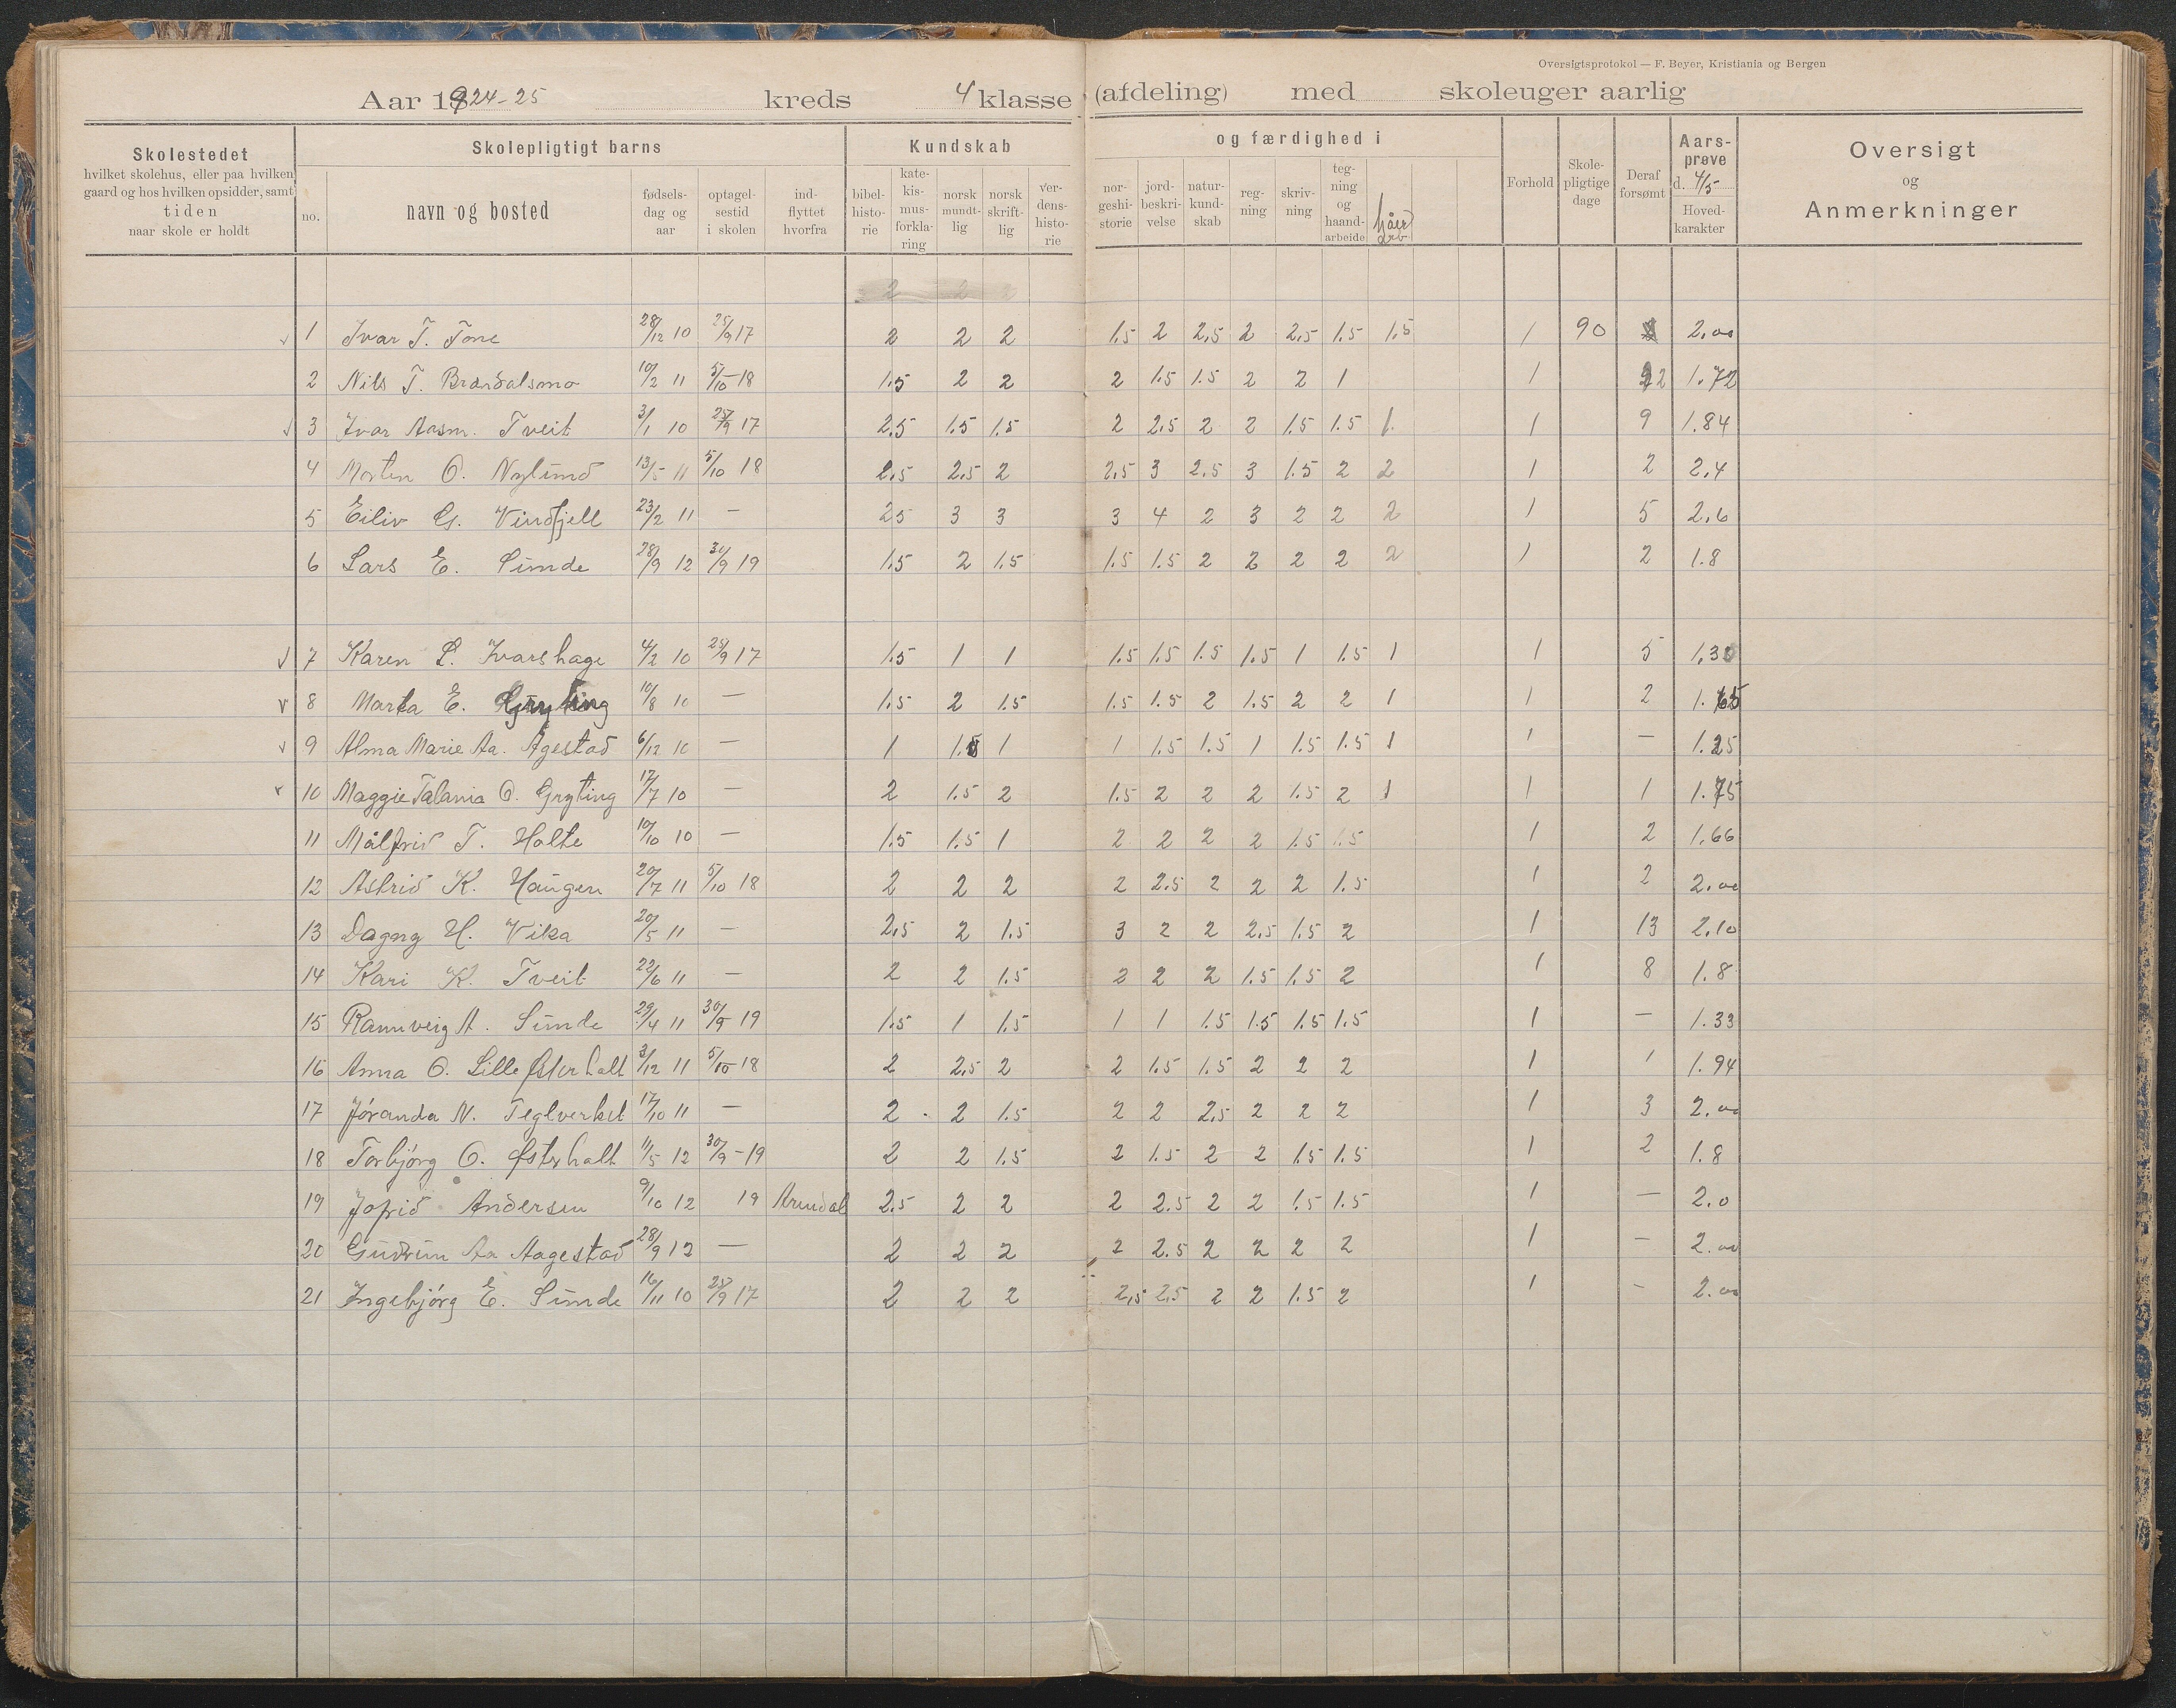 Oversigtsprotokol — F. Beyer, Kristiania og Bergen
Aar 1924-25 kreds 4 klasse (afdeling) med skoleuger aarlig
Skolestedet
hvilket skolehus, eller paa hvilken
gaard og hos hvilken opsidder, samt
tiden
naar skole er holdt
Skolepligtigt barns
no.
navn og bosted
fødsels-
dag og
aar
optagel-
sestid
i skolen
ind-
flyttet
hvorfra
Kundskab
bibel-
histo-
rie
kate-
kis-
mus-
forkla-
ring
norsk
mundt-
lig
norsk
skrift-
lig
ver-
dens-
histo-
rie
og færdighed i
nor-
geshi-
storie
jord-
beskri-
velse
natur-
kund-
skab
reg-
ning
skriv-
ning
teg-
ning
og
haand-
arbeide
Forhold
Skole-
pligtige
dage
Deraf
forsømt
Aars-
prøve
d. 4/5
Hoved-
karakter
Oversigt
og
Anmerkninger
2 2 2
1 Ivar T. Tone 28/12 10 25/9 17 2 2 2 1.5 2 2,5 2 2,5 1.5 1.5 1 90 2,00
2 Nils T. Brårdalsmo 10/2 11 5/10-18 1.5 2 2 2 1.5 1.5 2 2 1 1 1.72
3 Ivar Aasm. Tveit 3/1 10 25/9 17 2.5 1.5 1.5 2 2.5 2 2 1.5 1.5 1. 1 9 1.84
4 Morten O. Nylund 13/5 11 5/10 18 2.5 2.5 2 2.5 3 2.5 3 1.5 2 2 1 2 2.4
5 Eiliv G. Vindfjell 23/2 11 - 25 3 3 3 4 2 3 2 2 2 1 5 2.6
6 Lars E. Sunde 28/9 12 30/9 19 1.5 2 1.5 1.5 1.5 2 2 2 2 2 1 2 1.8
7 Karen L. Ivarshage 4/2 10 25/9 17 1.5 1 1 1.5 1.5 1.5 1.5 1 1.5 1 1 5 1.30
8 Marta E. Gryting 10/8 10 — 1.5 2 1.5 1.5 1.5 2 1.5 2 2 1 1 2 1.65
9 Alma Marie Aa. Agestad 6/12 10 — 1 1.5 1 1 1.5 1.5 1 1.5 1.5 1 1 — 1.25
10 Maggie Talania O. Gryting 17/7 10 — 2 1.5 2 1.5 2 2 2 1.5 2 1 1 1 1.75
11 Målfrid T. Holte 10/10 10 — 1.5 1.5 1 2 2 2 2 1.5 1.5 1 2 1.66
12 Astrid K. Haugen 20/7 11 5/10 18 2 2 2 2 2.5 2 2 2 1.5 1 2 2.00
13 Dagny H. Vika 20/5 11 — 2,5 2 1.5 3 2 2 2.5 1.5 2 1 13 2.10
14 Kari K. Tveit 22/6 11 — 2 2 1.5 2 2 2 1.5 1.5 2 1 8 1.8
15 Rannveig A. Sunde 29/4 11 30/9 19 1.5 1 1.5 1 1 1.5 1.5 1.5 1.5 1 — 1.33
16 Anna O. Lille Østerhalt 3/12 11 5/10-18 2 2,5 2 2 1.5 1.5 2 2 2 1 1 1.94
17 Jóranda N. Teglverket 17/10 11 — 2 2 1.5 2 2 2,5 2 2 2 1 3 2.00
18 Torbjórg O. Østerhalt 11/5 12 30/9-19 2 2 1.5 2 1.5 2 2 1.5 1.5 1 2 1.8
19 Jofrid Andersen 9/10 12 19 Arendal 2.5 2 2 2 2.5 2 2 1.5 1.5 1 — 2.0
20 Gudrun Aa Aagestad 28/9 12 — 2 2 2 2 2.5 2 2 2 2 1 — 2.00
21 Ingebjórg E. Sunde 16/11 10 25/9 17 2 2 2 2,5 2,5 2 2 1.5 2 1 - 2.00